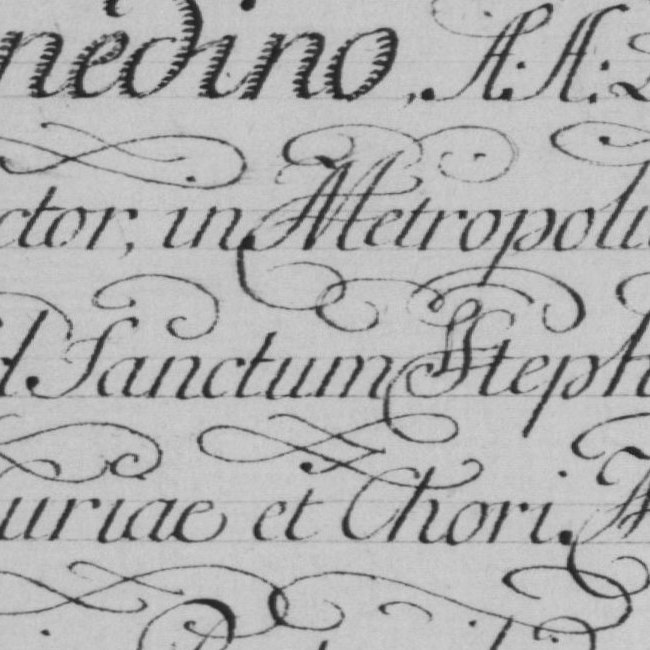 nedino, A: A:
ctor, in Metropoli
d Sanctum Steph
uriae et Chori.